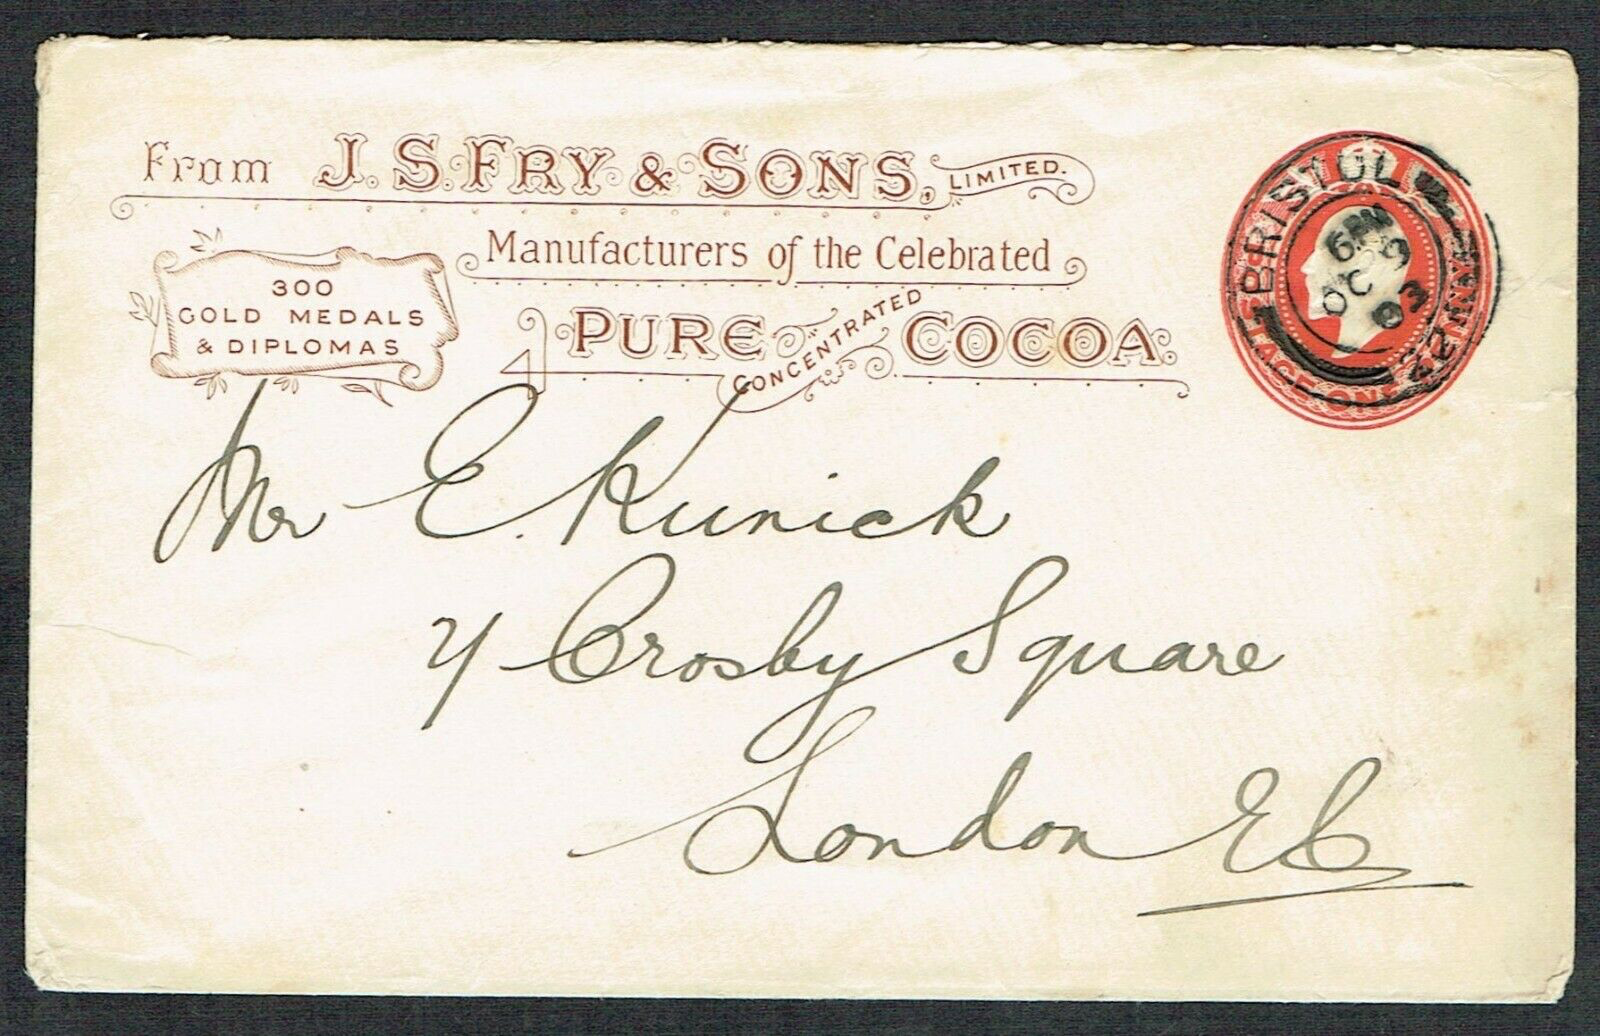 From J. S. FRY & SONS, LIMITED.
Manufacturers of the Celebrated
PURE CONCENTRATED COCOA.
300
GOLD MEDALS
& DIPLOMAS
BRISTOL
OC 9
03
ONE PENNY
Mr E. Kunick
Crosby Square
London EC